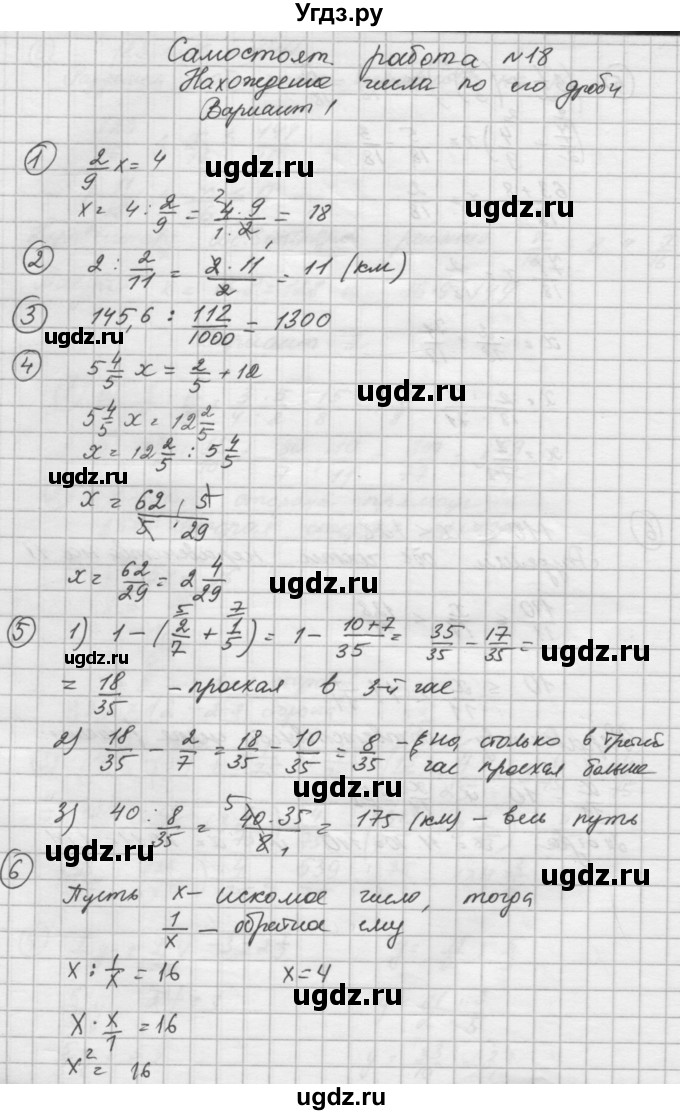 Угдз.ру
Самостоят. работа №18
Нахождение числа по его дроби
Вариант 1
ugdz.ru ugdz.ru
① 2/9 x = 4
x = 4 : 2/9 = 4 · 9 / 1 · 2 = 18
ugdz.ru
② 2 : 2/11 = 2 · 11 / 2 = 11 (км)
ugdz.ru
③ 145,6 : 112/1000 = 1300
ugdz.ru
④ 5 4/5 x = 2/5 + 12
ugdz.ru
5 4/5 x = 12 2/5
x = 12 2/5 : 5 4/5
ugdz.ru
x = 62 · 5 / 5 · 29
x = 62/29 = 2 4/29
ugdz.ru
⑤ 1) 1 – (2/7 + 1/5) = 1 – 10+7/35 = 35/35 – 17/35 =
ugdz.ru
= 18/35 – проехал в 3-й час
2) 18/35 – 2/7 = 18/35 – 10/35 = 8/35 – на столько в третий
час проехал больше
ugdz.ru
3) 40 : 8/35 = 40 · 35 / 8 = 175 (км) – весь путь
ugdz.ru
⑥ Пусть x – искомое число, тогда
ugdz.ru
1/x – обратное ему
x : 1/x = 16 x = 4
ugdz.ru
x · x/1 = 16
x² = 16
ugdz.ru